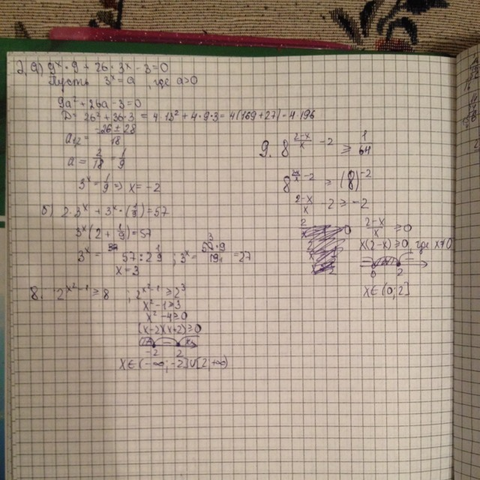 2. а) 9ˣ · 9 + 26 · 3ˣ - 3 = 0
Пусть 3ˣ = a, где a>0
9a² + 26a - 3 = 0
D = 26² + 36·3 = 4·13² + 4·9·3 = 4(169+27) = 4·196
a₁₂ = (-26 ± 28)/18
a = 2/18 = 1/9
3ˣ = 1/9 => x = -2
б) 2·3ˣ + 3ˣ·(1/9) = 57
3ˣ(2 + 1/9) = 57
3ˣ = 57 : 2 1/9 ; 3ˣ = 57·9/19 = 27
x = 3
8. 2^(x²-1) ≥ 8 ; 2^(x²-1) ≥ 2³
x² - 1 ≥ 3
x² - 4 ≥ 0
(x-2)(x+2) ≥ 0
-2 2
x ∈ (-∞; -2] ∪ [2; +∞)
9. 8^((2-x)/x - 2) ≥ 1/64
8^((2-x)/x - 2) ≥ (8)^-2
(2-x)/x - 2 ≥ -2
(2-x)/x ≥ 0
x(2-x) ≥ 0, где x≠0
0 2
x ∈ (0; 2]